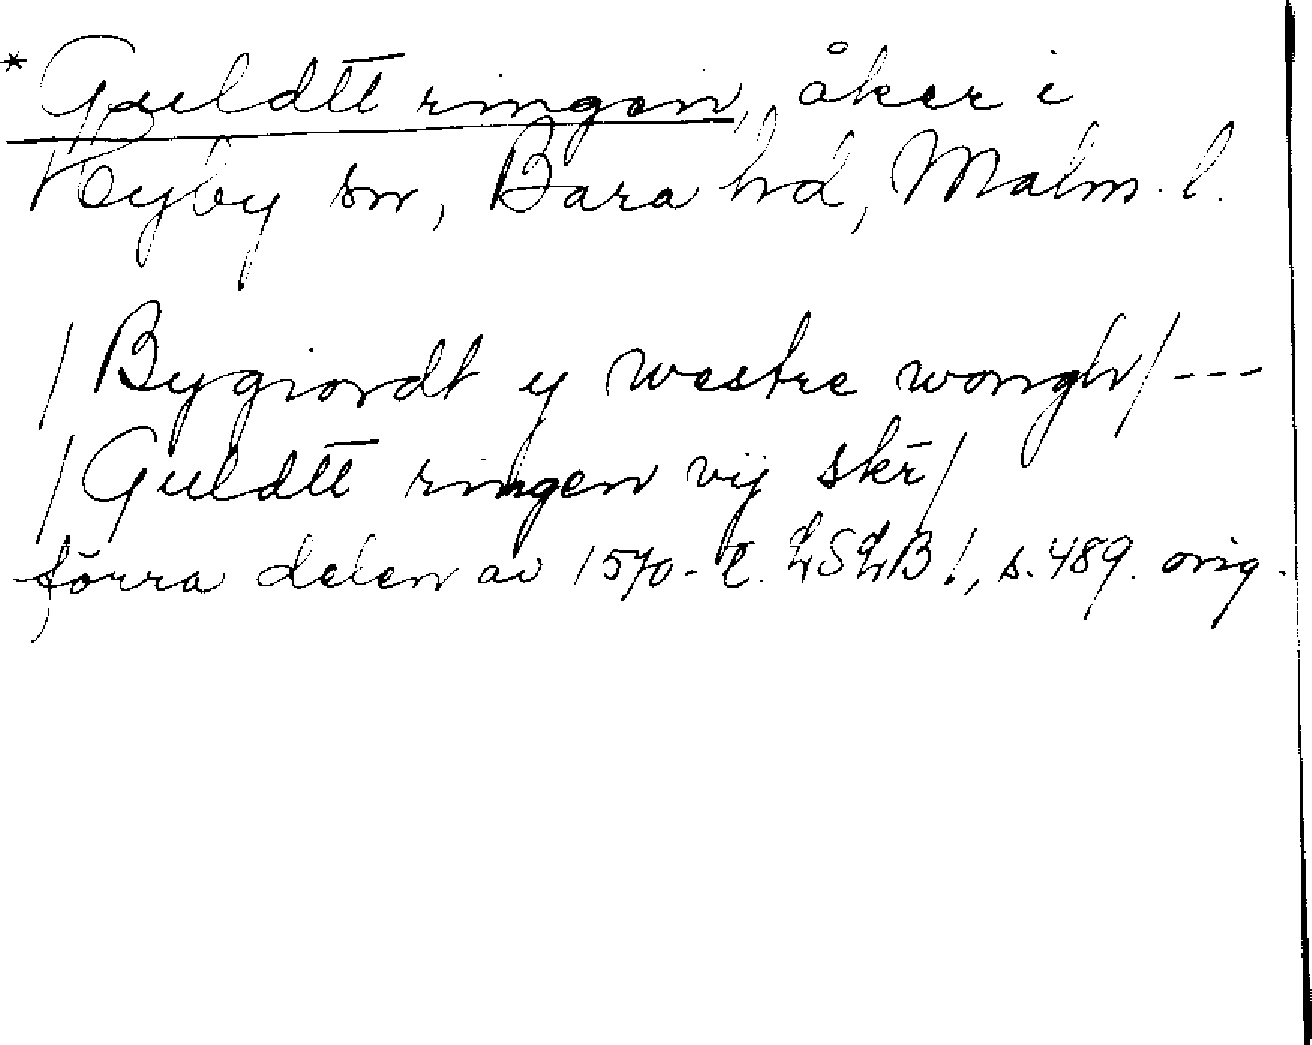 * Guldtt ringen, åker i
Hyby sn, Bara hd, Malm. l.
/ Bygiordt y westre wongh / ---
/ Guldtt ringen vij skr /
förra delen av 1570-t. LSLB 1, s. 489. orig.